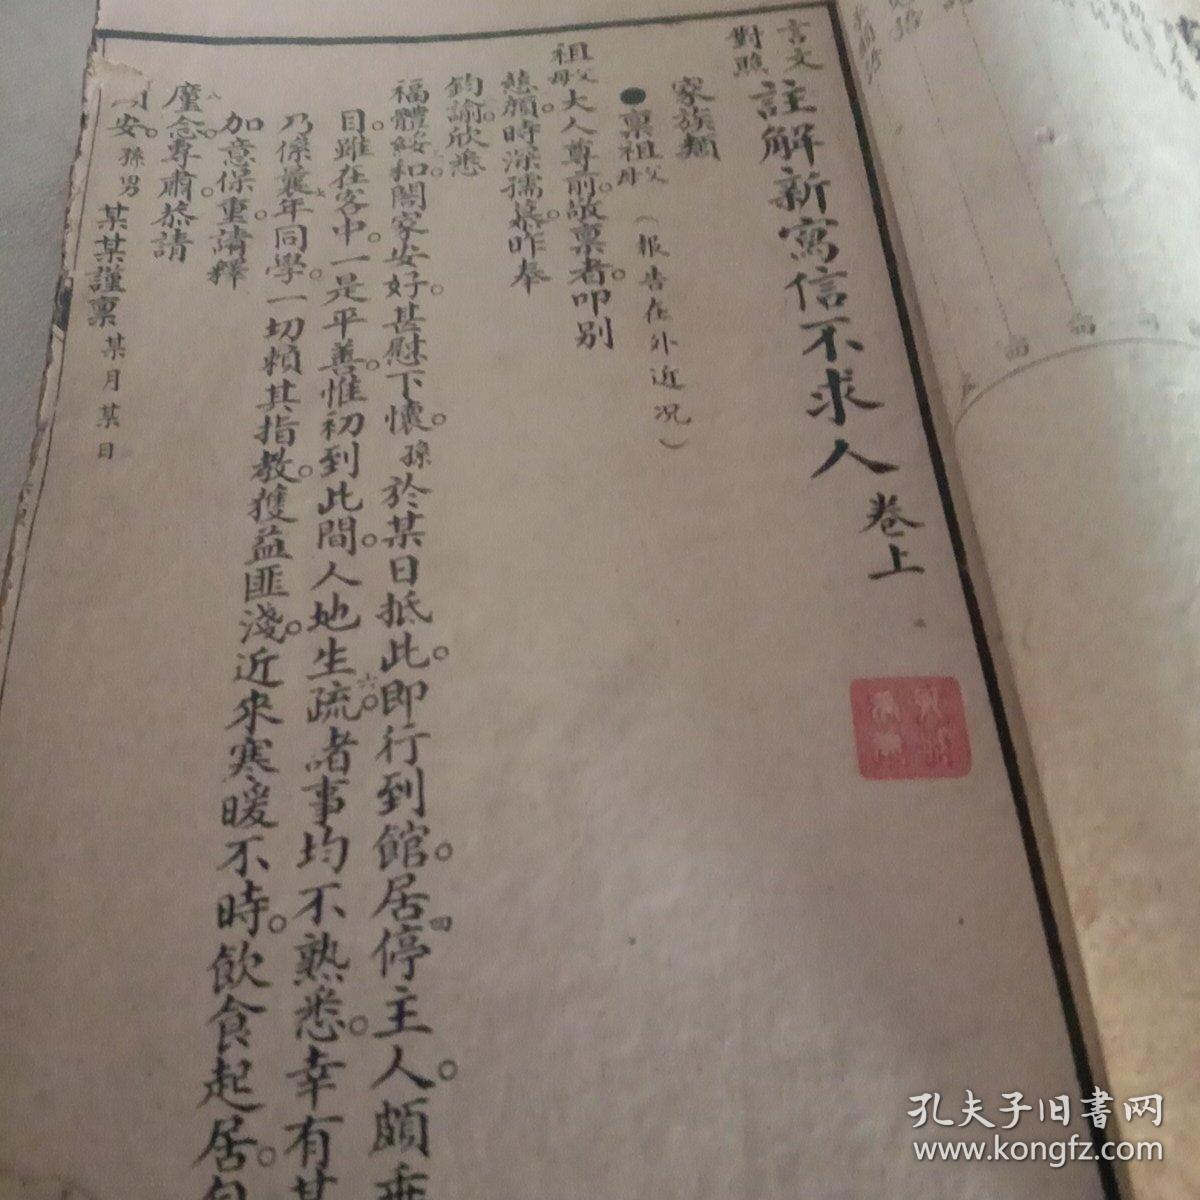 言文
對照
註解新寫信不求人 卷上
家族類
●稟祖父母（報告在外近况）
祖父母大人尊前。敬稟者。叩别
慈顏。時深孺慕。昨奉
鈞諭。欣悉
福體綏和。闔家安好。甚慰下懷。孫於某日抵此。即行到館。居停主人。頗垂
目。雖在客中。一是平善。惟初到此間。人地生疏。諸事均不熟悉。幸有某
乃係曩年同學。一切賴其指教。獲益匪淺。近來寒暖不時。飲食起居。
加意保重。請釋
廑念。專肅。恭請
安。孫男 某某謹稟 某月某日
孔夫子旧書网
www.kongfz.com